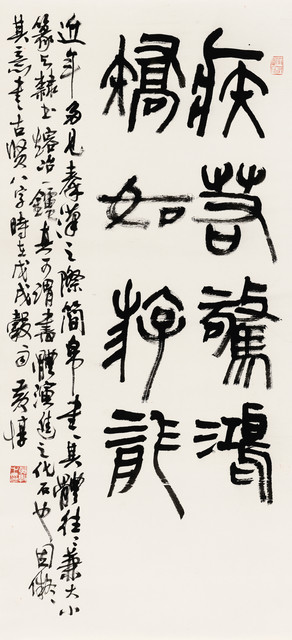 疾若驚鴻
矯如游龍
近年多見秦漢之際簡帛書、其體往、兼大小
篆與隸書熔冶一鍾真可謂書體演進之化石也因倣
其意書古賢八字時在戊戌穀雨黃惇